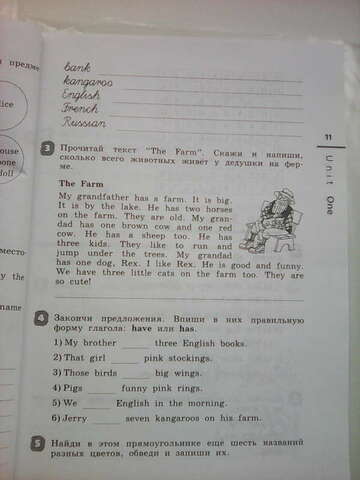 предме
bank
kangaroo
English
French
Russian
lice
ouse
bone
doll
место
by the
name
11
Unit One
3 Прочитай текст "The Farm". Скажи и напиши,
сколько всего животных живёт у дедушки на фер-
ме.
The Farm
My grandfather has a farm. It is big.
It is by the lake. He has two horses
on the farm. They are old. My gran-
dad has one brown cow and one red
cow. He has a sheep too. He has
three kids. They like to run and
jump under the trees. My grandad
has one dog, Rex. I like Rex. He is good and funny.
We have three little cats on the farm too. They are
so cute!
4 Закончи предложения. Впиши в них правильную
форму глагола: have или has.
1) My brother ______ three English books.
2) That girl ______ pink stockings.
3) Those birds ______ big wings.
4) Pigs ______ funny pink rings.
5) We ______ English in the morning.
6) Jerry ______ seven kangaroos on his farm.
5 Найди в этом прямоугольнике ещё шесть названий
разных цветов, обведи и запиши их.